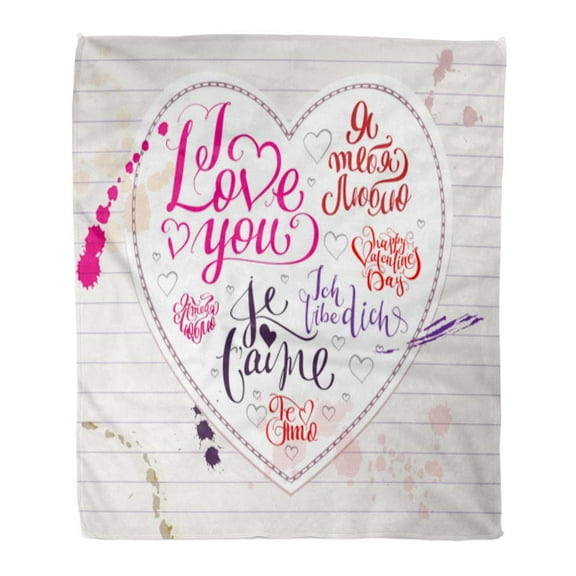 I
Love
you
Я
тебя
Люблю
happy
Valentine's
Day
Я тебя
люблю
Je
t'aime
Ich
libe dich
Te
Amo